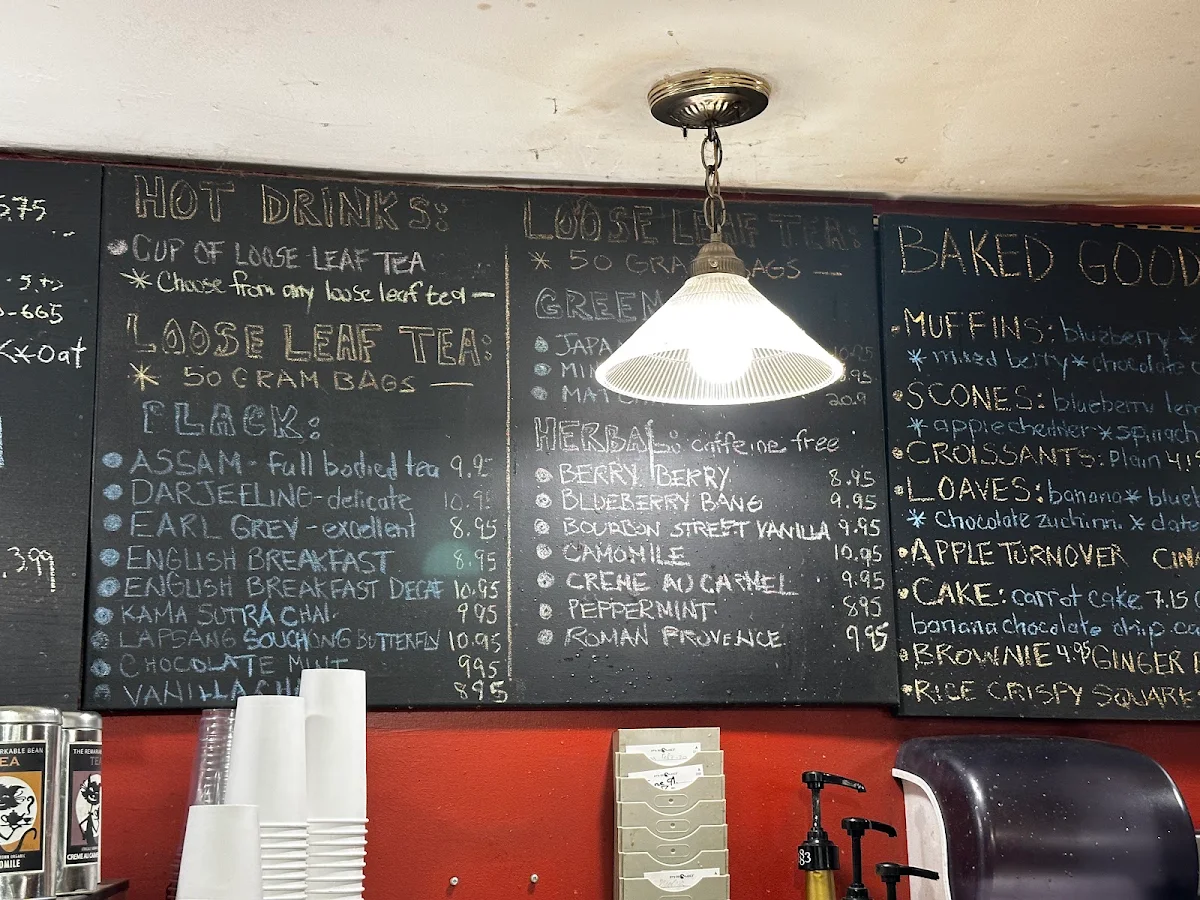 5.75
-665
**oat
3.99
HOT DRINKS:
CUP OF LOOSE LEAF TEA
* Choose from any loose leaf tea —
LOOSE LEAF TEA:
* 50 GRAM BAGS —
BLACK:
ASSAM - full bodied tea 9.95
DARJEELING - delicate 10.95
EARL GREY - excellent 8.95
ENGLISH BREAKFAST 8.95
ENGLISH BREAKFAST DECAF 10.95
KAMA SUTRA CHAI 995
LAPSANG SOUCHONG BUTTERFLY 10.95
CHOCOLATE MINT 995
VANILLA 895
LOOSE LEAF TEA:
* 50 BAGS —
HERBAL: caffeine free
BERRY BERRY 8.95
BLUEBERRY BANG 9.95
BOURBON STREET VANILLA 9.95
CAMOMILE 10.95
CREME AU CARMEL 9.95
PEPPERMINT 895
ROMAN PROVENCE 995
BAKED GOOD
MUFFINS: blueberry *
* mixed berry * chocolate
SCONES: blueberry
* apple cheddar * spinach
CROISSANTS: Plain
LOAVES: banana *
* chocolate zuchinn. *
APPLE TURNOVER
CAKE: carrot cake 7.15
banana chocolate chip
BROWNIE 4.95 GINGER
RICE CRISPY SQUARE
THE
CREME AU
83